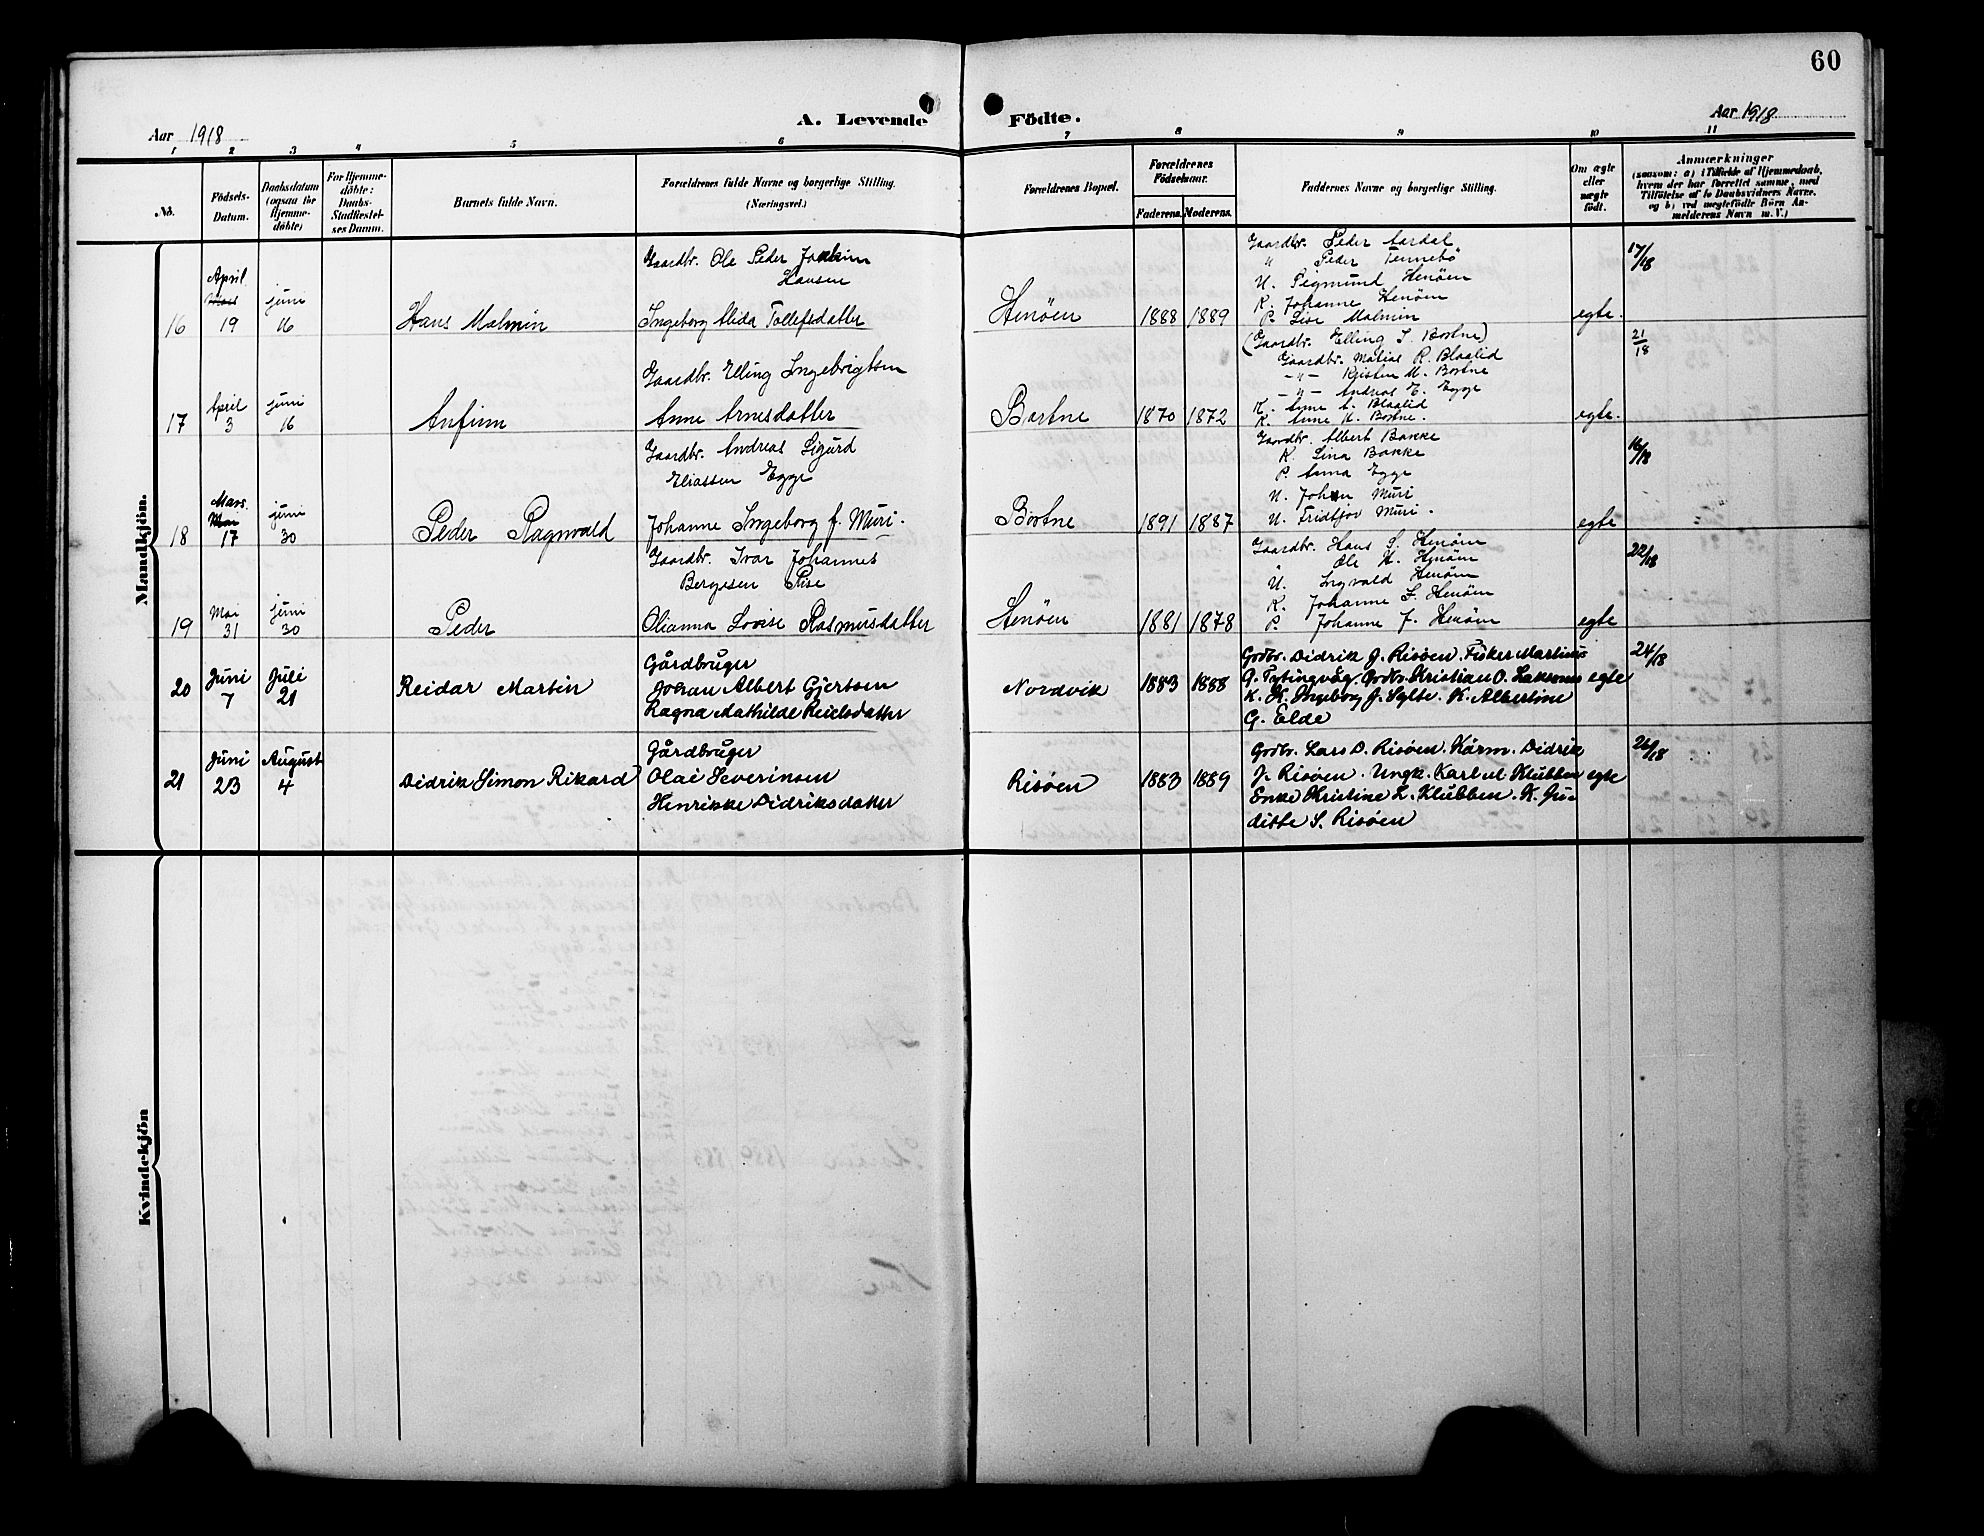 60
Aar 1918
A. Levende
Födte.
Aar 1918
1 2 3 4 5 6 7 8 9 10 11
No.
Födsels-
Datum.
Daabsdatum
(ogsaa for
Hjemme-
döbte)
For Hjemme-
döbte:
Daabs-
Stadfæstel-
ses Datum.
Barnets fulde Navn.
Forældrenes fulde Navne og borgerlige Stilling.
(Næringsvei.)
Forældrenes Bopæl.
Forældrenes
Födselsaar.
Faderens. Moderens.
Faddernes Navne og borgerlige Stilling.
Om ægte
eller
uægte
født.
Anmærkninger
(saasom: a) i Tilfælde af Hjemmedaab,
hvem der har forrettet samme, med
Tilföielse af to Daabsvidners Navne.
og b) ved uægtefödte Börn An-
melderens Navn m. V.)
Mandkjön.
16
April
19
juni
16
Hans Malmin
Gaardbr. Ole Peder Joakim
Hansen
Ingeborg Alida Tollefsdatter
Henöen
1888 1889
Gaardbr. Peder Aardal
" Peder Tennebö
U. Sigmund Henöen
K. Johanne Henöen
P. Lise Malmin
egte.
17/18
17
April
3
juni
16
Anfinn
Gaardbr. Elling Ingebrigtsen
Anne Arnesdatter
Bortne
1870 1872
(Gaardbr. Elling I. Bortne)
Gaardbr. Matias R. Blaalid
-"- Kristen M. Bortne
-"- Andreas E. Egge
K. Anne A. Blaalid
K. Anne K. Bortne.
egte.
21/18
18
Mars
17
juni
30
Peder Ragnvald
Gaardbr. Andreas Sigurd
Eliassen Egge
Johanne Ingeborg f. Muri.
Bortne
1891 1887
Gaardbr. Albert Bakke
K. Lina Bakke
P. Anna Egge
U. Johan Muri
U. Fridtjov Muri.
egte
16/18
19
Mai
31
juni
30
Peder
Gaardbr. Ivar Johannes
Bergesen Rise
Olianna Lovise Rasmusdatter
Henöen
1881 1878
Gaardbr. Hans S. Henöen
" Ole H. Henöen
U. Ingvald Henöen
K. Johanne S. Henöen
P. Johanne J. Henöen
egte
22/18
20
Juni
7
Juli
21
Reidar Martin
Gårdbruger
Johan Albert Gjertsen
Ragna Mathilde Reielsdatter
Nordvik
1883 1888
Grdbr. Didrik J. Risöen. Fisker Martinus
G. Tytingvåg. Grdbr. Kristian O.
K. K. Ingeborg J. Sylte. K. Albertine
G. Elde
egte
24/18
21
Juni
23
August
4
Didrik Simon Rikard
Gårdbruger
Olai Severinsen
Henrikke Didriksdatter
Risöen
1883 1889
Grdbr. Lars D. Risöen. Kårm. Didrik
J. Risöen. Ungk. Karl M. Klubben
Enke Kristine L. Klubben. K. Ju-
ditte S. Risöen
egte
26/18
Kvindekjön